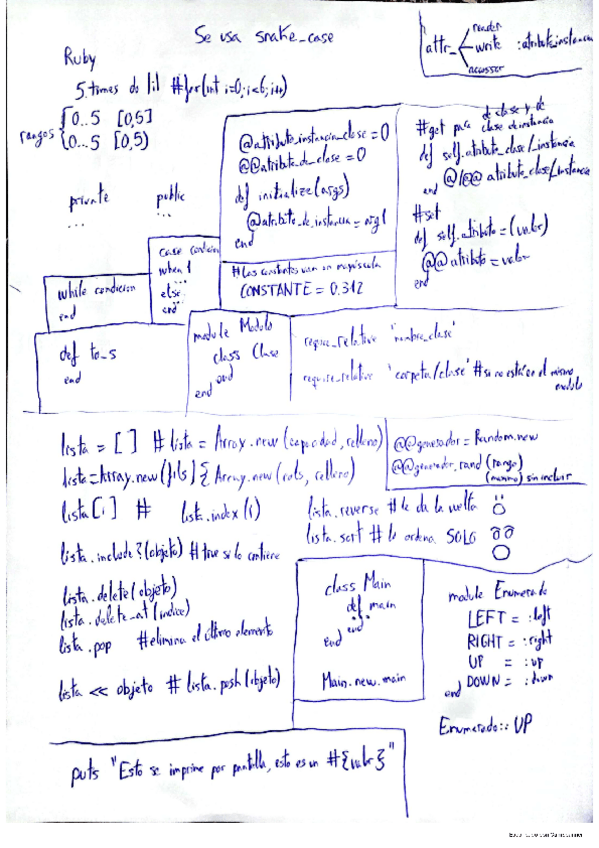 Se usa snake_case
Ruby
attr_
reader
write
accessor
:atributo_instancia
5.times do |i| #for(int i=0; i<6; i++)
rangos
0..5 [0,5]
0...5 [0,5)
private public
... ...
@atributo_instancia_clase = 0
@@atributo_de_clase = 0
def initialize(args)
@atributo_de_instancia = arg1
end
#Las constantes van en mayúscula
CONSTANTE = 0.312
#get para de clase y de
clase de instancia
def self.atributo_clase/_instancia
@/@@ atributo_clase/_instancia
end
#set
def self.atributo=(valor)
@@atributo = valor
end
case condicion
when 1
...
else
...
end
while condicion
end
def to_s
end
module Modulo
class Clase
end
end
require_relative 'nombre_clase'
require_relative 'carpeta/clase' #si no está en el mismo
modulo
lista = [] # lista = Array.new(capacidad, relleno)
lista=Array.new(fils) { Array.new(cols, relleno)
lista[i] # list.index(i)
@@generador = Random.new
@@generador.rand (rango)
(maximo) sin incluir
lista.reverse #le da la vuelta
lista.sort #lo ordena SOLO
lista.include?(objeto) #true si lo contiene
lista.delete(objeto)
lista.delete_at(indice)
lista.pop #elimina el último elemento
lista << objeto # lista.push(objeto)
class Main
def main
...
end
end
Main.new.main
module Enumerado
LEFT = :left
RIGHT = :right
UP = :up
DOWN = :down
end
Enumerado::UP
puts "Esto se imprime por pantalla, esto es un #{valor}"